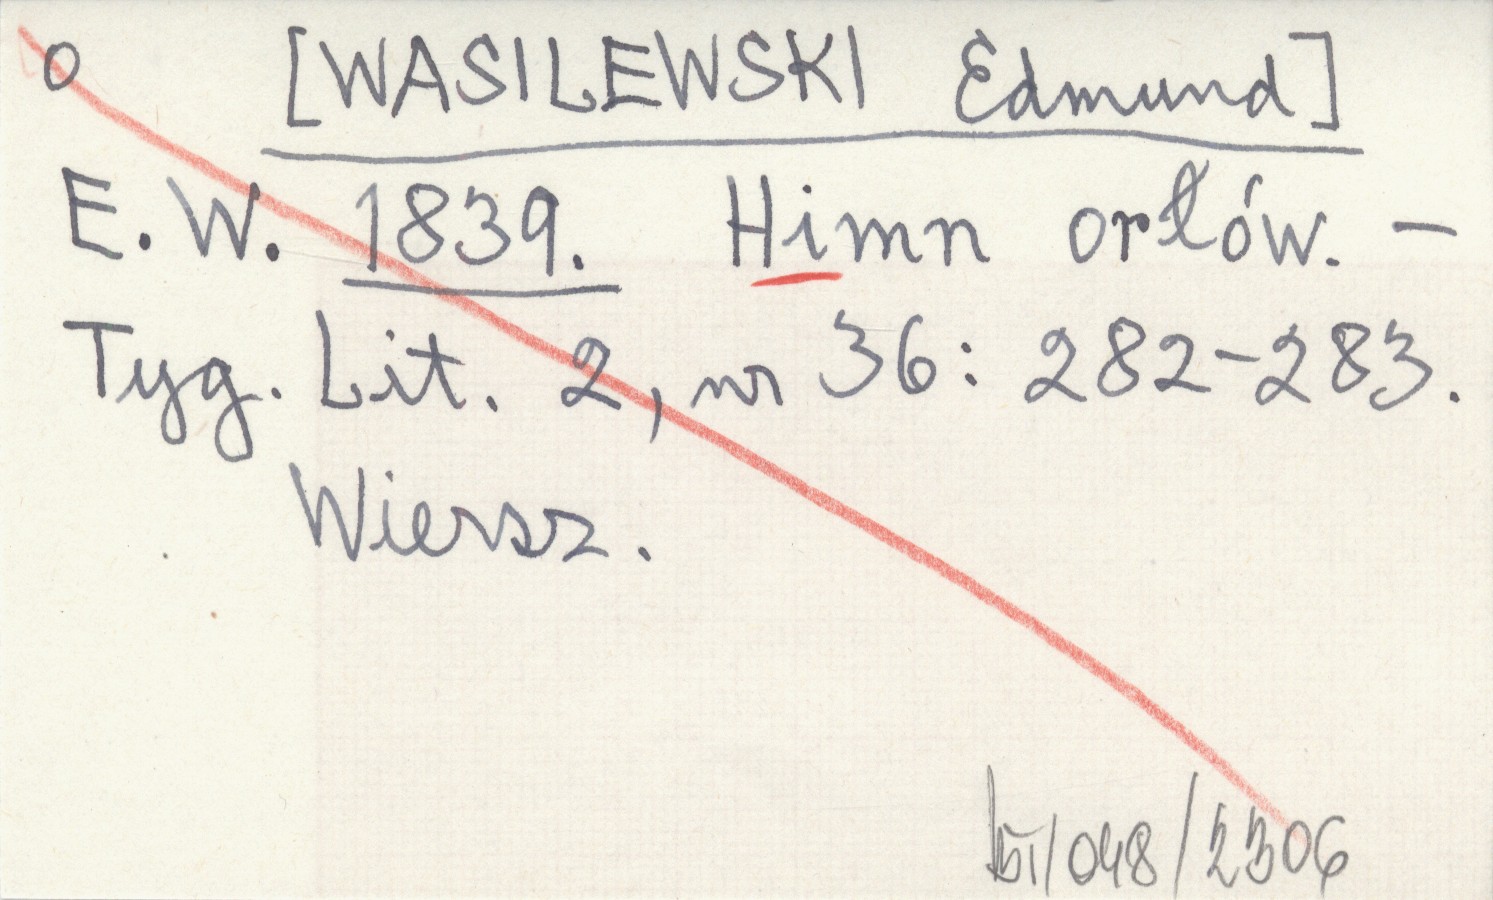 o [WASILEWSKI Edmund]
E. W. 1839. Himn orłów. -
Tyg. Lit. 2, nr 36: 282-283.
Wiersz.
/048/2306